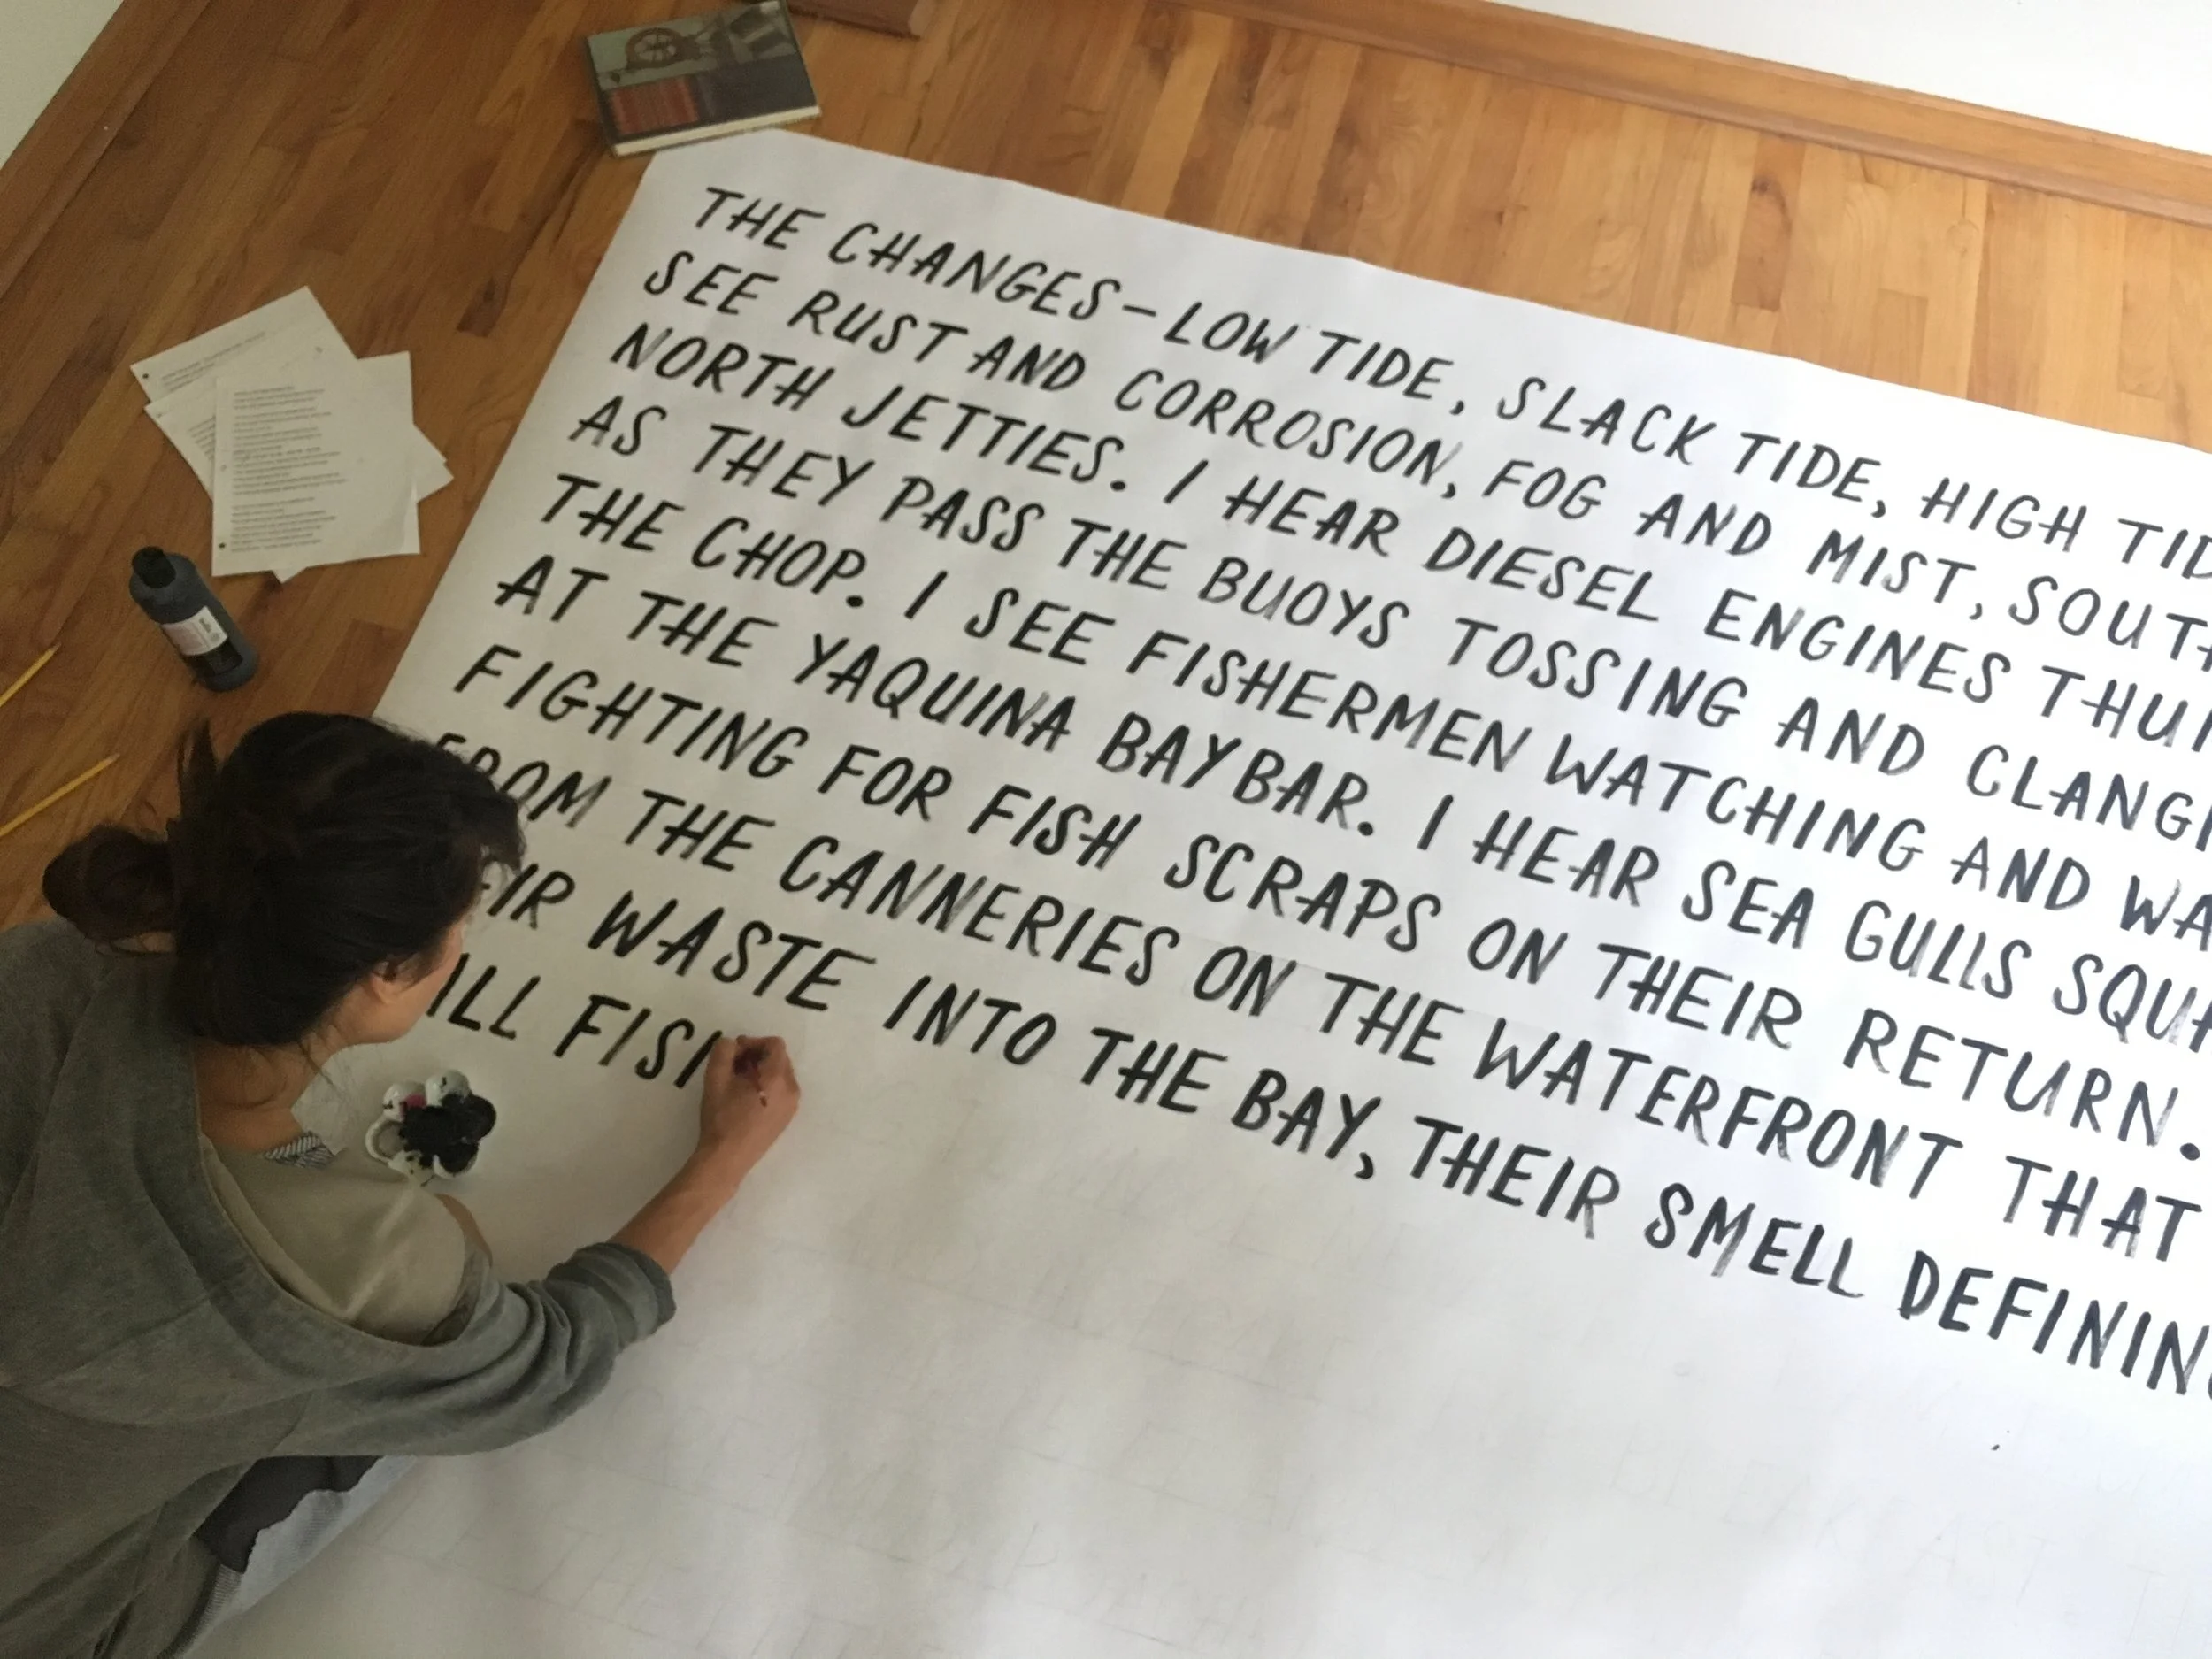 THE CHANGES – LOW TIDE, SLACK TIDE, HIGH TID
SEE RUST AND CORROSION, FOG AND MIST, SOUTH
NORTH JETTIES. I HEAR DIESEL ENGINES THU
AS THEY PASS THE BUOYS TOSSING AND CLANGI
THE CHOP. I SEE FISHERMEN WATCHING AND WA
AT THE YAQUINA BAY BAR. I HEAR SEA GULLS SQU
FIGHTING FOR FISH SCRAPS ON THEIR RETURN.
FROM THE CANNERIES ON THE WATERFRONT THAT
EIR WASTE INTO THE BAY, THEIR SMELL DEFINING
ILL FISH